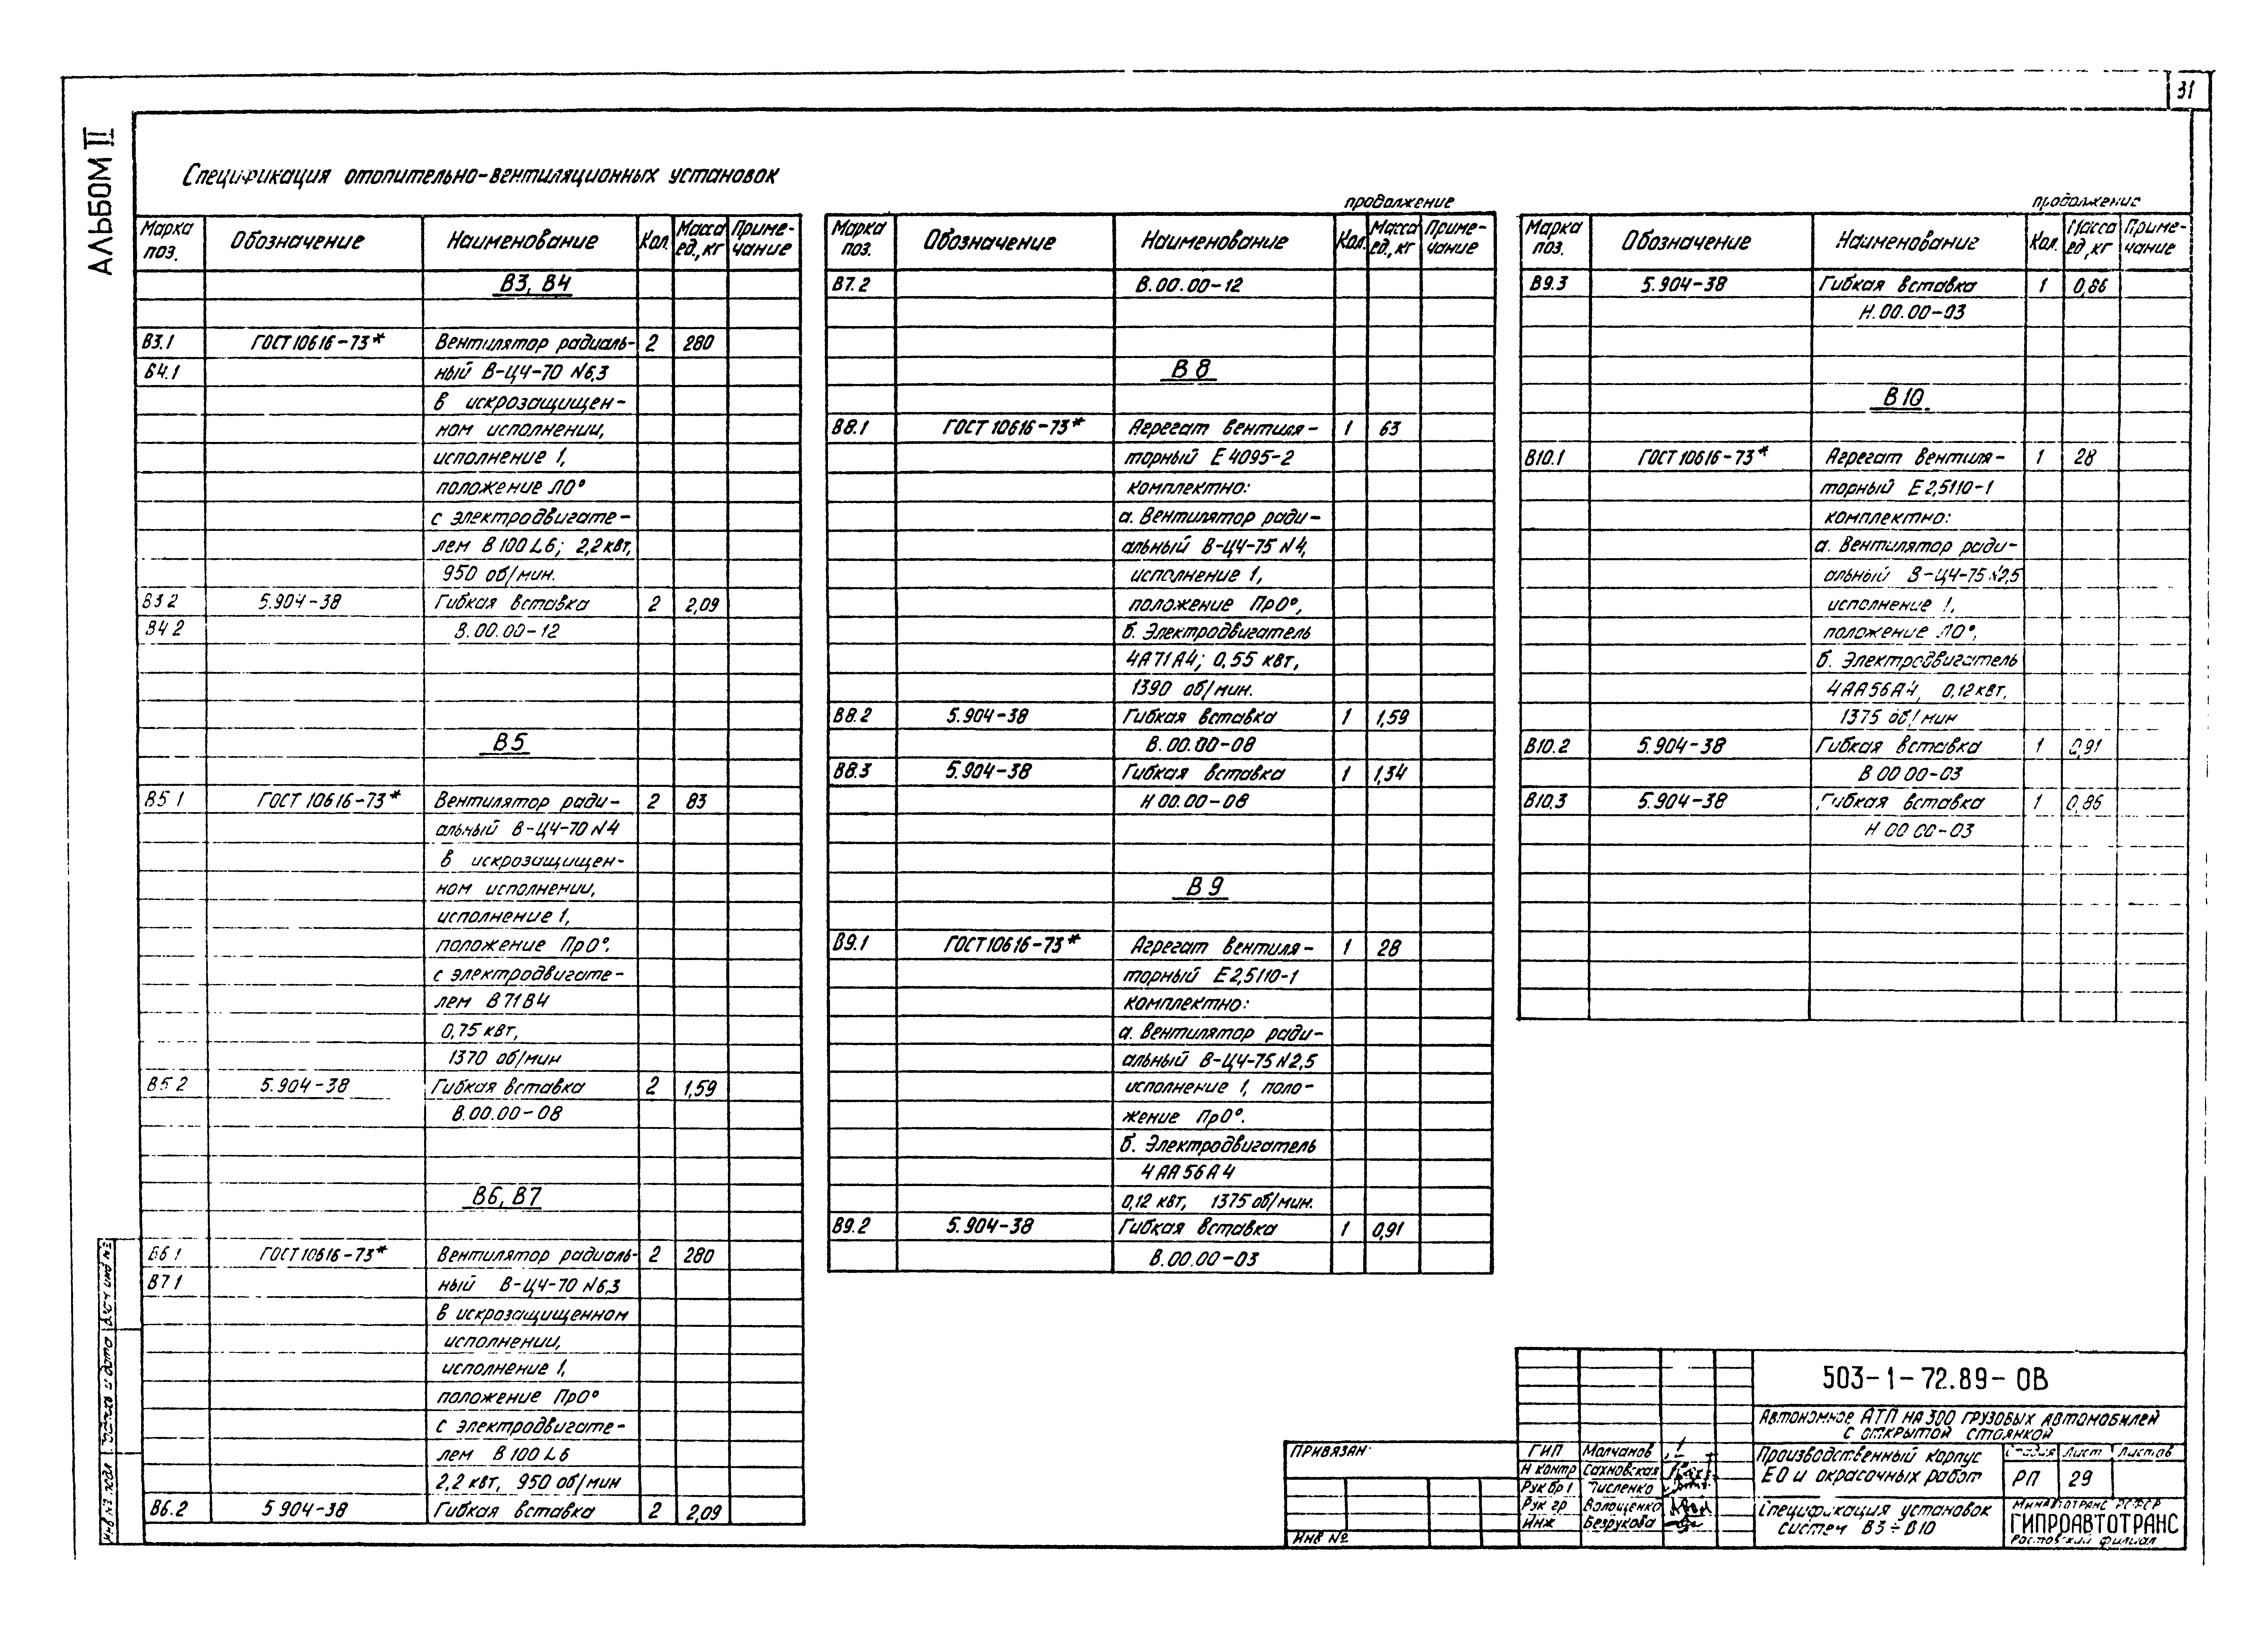 31
АЛЬБОМ II
Спецификация отопительно-вентиляционных установок
Марка поз. Обозначение Наименование Кол. Масса ед., кг Приме-чание
В3, В4
В3.1 ГОСТ 10616-73* Вентилятор радиаль- 2 280
В4.1 ный В-Ц4-70 №6,3
в искрозащищен-
ном исполнении,
исполнение 1,
положение Л0°
с электродвигате-
лем В100L6; 2,2 квт,
950 об/мин.
В3 2 5.904-38 Гибкая вставка 2 2,09
В4 2 В.00.00-12
В5
В5 1 ГОСТ 10616-73* Вентилятор ради- 2 83
альный В-Ц4-70 №4
в искрозащищен-
ном исполнении,
исполнение 1,
положение Пр0°.
с электродвигате-
лем В71В4
0,75 квт,
1370 об/мин
В5 2 5.904-38 Гибкая вставка 2 1,59
В.00.00-08
В6, В7
В6 1 ГОСТ 10616-73* Вентилятор радиаль- 2 280
В7 1 ный В-Ц4-70 №6,3
в искрозащищенном
исполнении,
исполнение 1,
положение Пр0°
с электродвигате-
лем В100L6
2,2 квт, 950 об/мин
В6.2 5 904-38 Гибкая вставка 2 2,09
продолжение
Марка поз. Обозначение Наименование Кол. Масса ед., кг Приме-чание
В7.2 В.00.00-12
В8
В8.1 ГОСТ 10616-73* Агрегат вентиля- 1 63
торный Е4095-2
комплектно:
а. Вентилятор ради-
альный В-Ц4-75 №4,
исполнение 1,
положение Пр0°,
б. Электродвигатель
4А71А4; 0,55 квт,
1390 об/мин.
В8.2 5.904-38 Гибкая вставка 1 1,59
В.00.00-08
В8.3 5.904-38 Гибкая вставка 1 1,34
Н 00.00-08
В9
В9.1 ГОСТ 10616-73* Агрегат вентиля- 1 28
торный Е2,5110-1
комплектно:
а. Вентилятор ради-
альный В-Ц4-75 №2,5
исполнение 1, поло-
жение Пр0°.
б. Электродвигатель
4АА56А4
0,12 квт, 1375 об/мин.
В9.2 5.904-38 Гибкая вставка 1 0,91
В.00.00-03
продолжение
Марка поз. Обозначение Наименование Кол. Масса ед., кг Приме-чание
В9.3 5.904-38 Гибкая вставка 1 0,86
Н.00.00-03
В10
В10.1 ГОСТ 10616-73* Агрегат вентиля- 1 28
торный Е2,5110-1
комплектно:
а. Вентилятор ради-
альный В-Ц4-75 №2,5
исполнение 1,
положение Л0°,
б. Электродвигатель
4АА56А4, 0,12 квт,
1375 об/мин
В10.2 5.904-38 Гибкая вставка 1 0,91
В 00 00-03
В10.3 5.904-38 Гибкая вставка 1 0,86
Н 00 00-03
503-1-72.89-ОВ
Автономное АТП на 300 грузовых автомобилей
с открытой стоянкой
Производственный корпус
ЕО и окрасочных работ
Стадия Лист Листов
РП 29
Спецификация установок
систем В3÷В10
Минавтотранс РСФСР
ГИПРОАВТОТРАНС
Ростовский филиал
ГИП Молчанов
Н контр Сахновская
Рук бр 1 Писленко
Рук гр Волощенко
Инж Безрукова
ПРИВЯЗАН:
Инв №
Инв № подл Подпись и дата Взам инв №